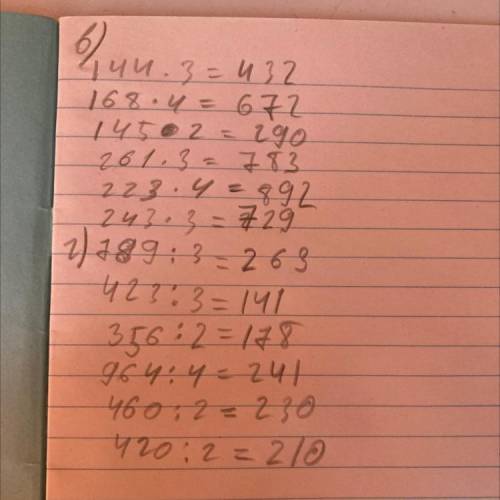 в)
144 · 3 = 432
168 · 4 = 672
145 · 2 = 290
261 · 3 = 783
223 · 4 = 892
243 · 3 = 729
г) 789 : 3 = 263
423 : 3 = 141
356 : 2 = 178
964 : 4 = 241
460 : 2 = 230
420 : 2 = 210